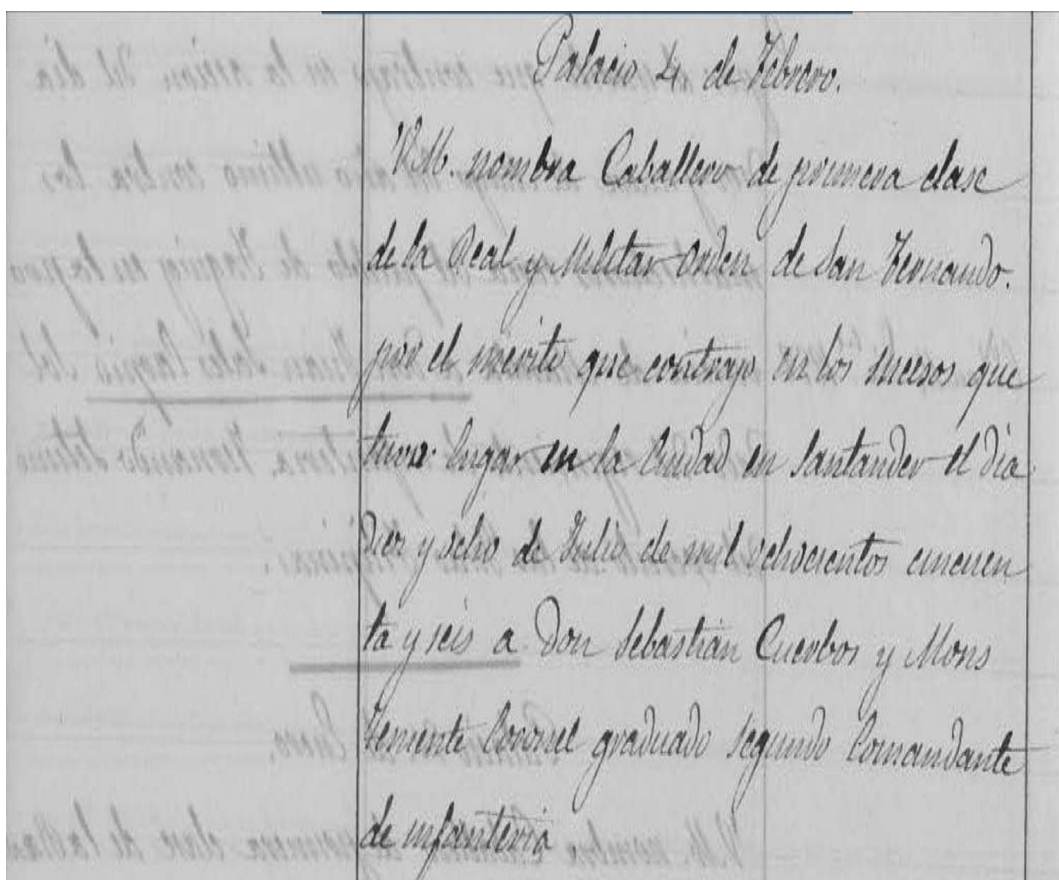 Palacio 4 de Febrero.
V.M. nombra Caballero de primera clase
de la Real y Militar Orden de San Fernando.
por el mérito que contrajo en los sucesos que
tuvo lugar en la Ciudad en Santander el día
diez y ocho de Julio de mil ochocientos cincuen
ta y seis a Don Sebastián Cuerbos y Mons
Teniente Coronel graduado segundo Comandante
de infantería